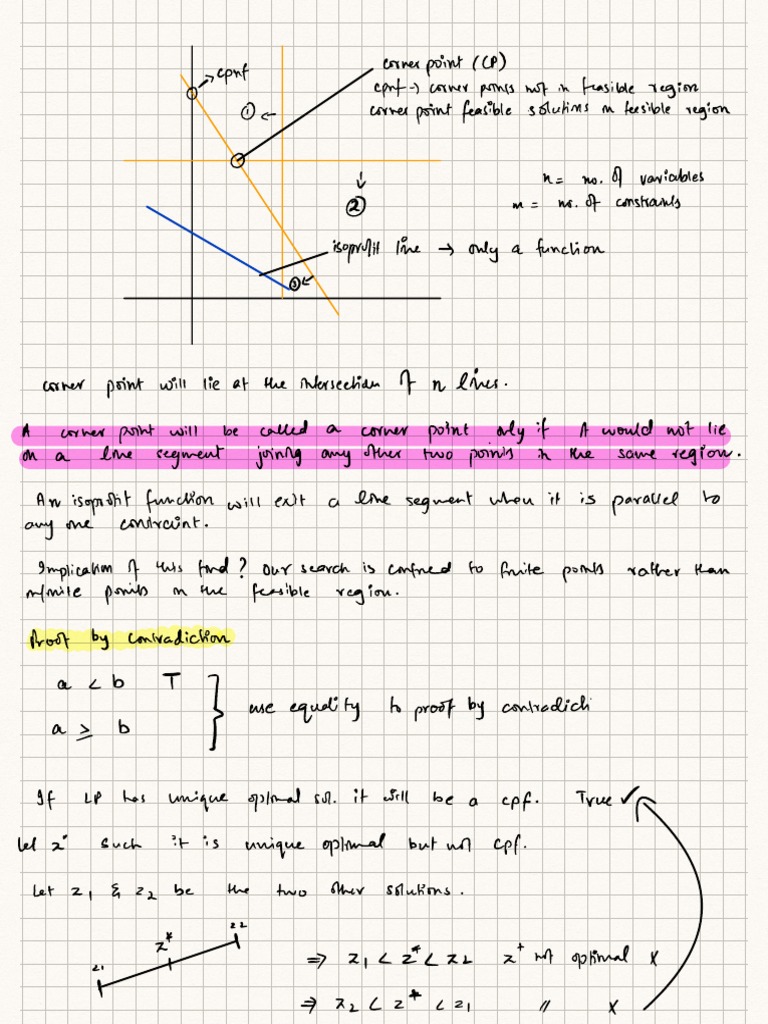 cpnf
corner point (CP)
cpnf → corner points not in feasible region
corner point feasible solutions in feasible region
① ←
n = no. of variables
↓
②
m = no. of constraints
isoprofit line → only a function
③ ←
corner point will lie at the intersection of n lines.
A corner point will be called a corner point only if it would not lie
on a line segment joining any other two points in the same region.
An isoprofit function will exit a line segment when it is parallel to
any one constraint.
Implication of this find? Our search is confined to finite points rather than
infinite points in the feasible region.
Proof by contradiction
a < b T
a ≥ b
use equality to proof by contradicti
If LP has unique optimal sol. it will be a cpf. True ✓
Let z* such it is unique optimal but not cpf.
Let z1 & z2 be the two other solutions.
z1 z* z2
⇒ z1 < z* < z2 z* not optimal ×
⇒ z2 < z* < z1 〃 ×